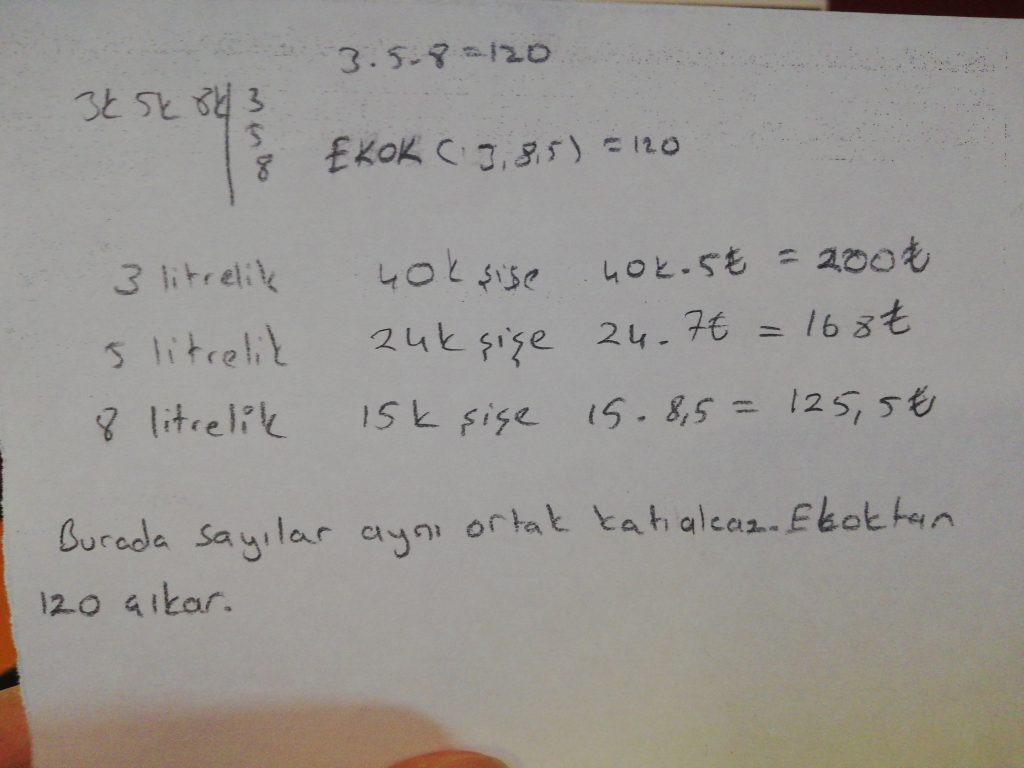 3.5.8=120
3k 5k 8k 3
5
8 EKOK (3,8,5) = 120
3 litrelik 40k şişe 40k.5₺ = 200₺
5 litrelik 24k şişe 24.7₺ = 168₺
8 litrelik 15k şişe 15.8,5 = 125,5₺
Burada sayılar aynı ortak Ekoktan
120 çıkar.